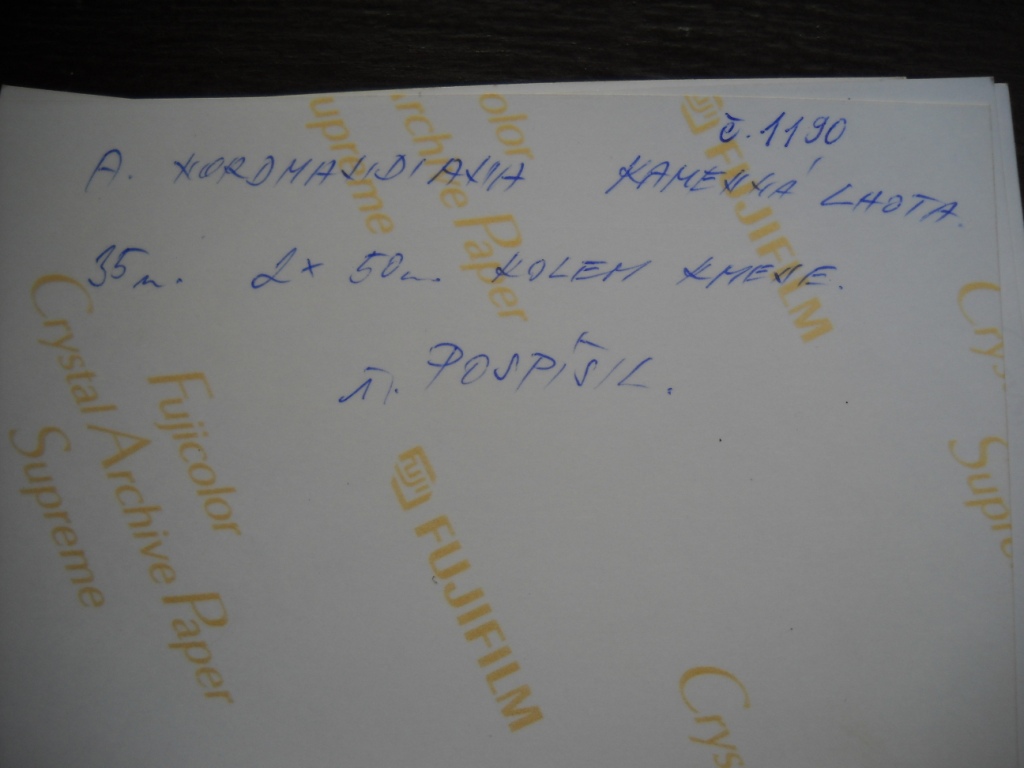 č. 1190
A. NORDMANNIANA KAMENNÁ LHOTA.
35m. 2x 50m. KOLEM KMENE.
POSPÍŠIL.
Fujicolor
Crystal Archive Paper
Supreme
FUJIFILM
FUJIFILM
olor
Archive Paper
upreme
Crys
Supre
Crys